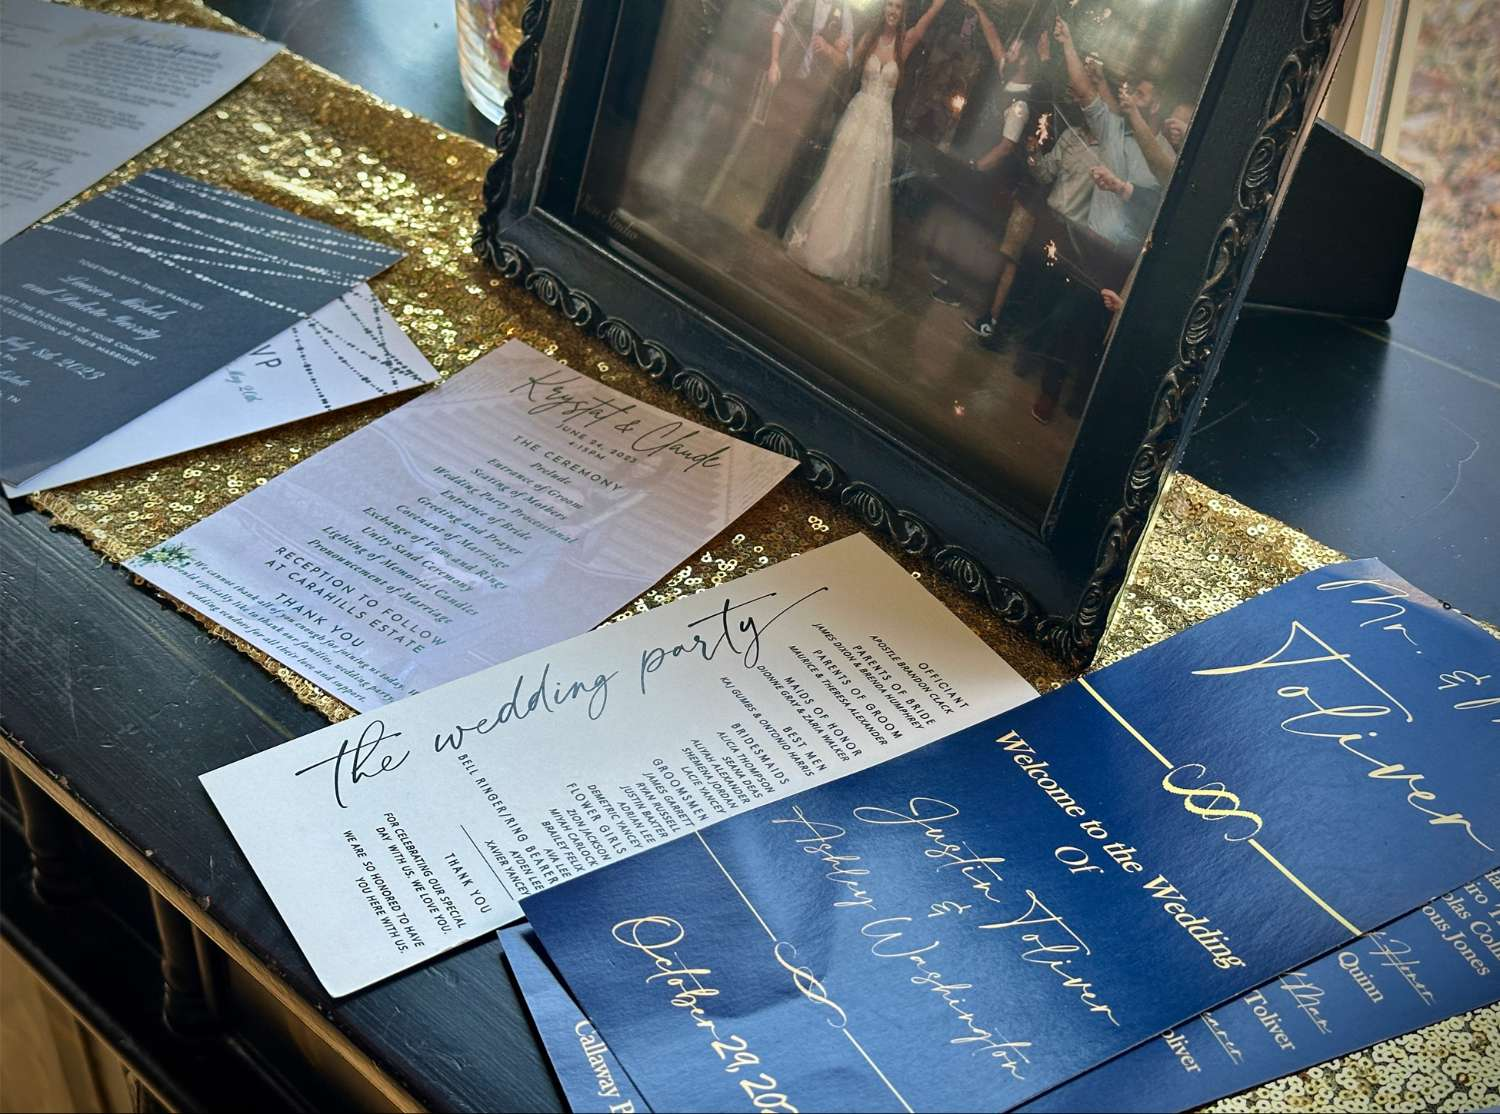 Acknowledgements
TOGETHER WITH THEIR FAMILIES
PLEASURE OF YOUR COMPANY
CELEBRATION OF THEIR MARRIAGE
8th 2023
TN
VP
May 20th
Krystal & Claude
JUNE 24, 2023
4:15PM
THE CEREMONY
Prelude
Entrance of Groom
Seating of Mothers
Wedding Party Processional
Entrance of Bride
Greeting and Prayer
Covenant of Marriage
Exchange of Vows and Rings
Unity Sand Ceremony
Lighting of Memorial Candles
Pronouncement of Marriage
RECEPTION TO FOLLOW
AT CARAHILLS ESTATE
THANK YOU
We cannot thank all of you enough for joining us today.
especially like to thank our families, wedding party
wedding vendors for all their love and support
the wedding party
OFFICIANT
APOSTLE BRANDON CLACK
PARENTS OF BRIDE
JAMES DIXON & BRENDA HUMPHREY
PARENTS OF GROOM
MAURICE & THERESA ALEXANDER
MAIDS OF HONOR
DIONNE GRAY & ZARIA WALKER
BEST MEN
KAJ GUMBS & ONTONIO HARRIS
BRIDESMAIDS
ALICIA THOMPSON
SEANA DEAS
ALIYAH ALEXANDER
SHEMENA JORDAN
LACIE YANCEY
GROOMSMEN
JAMES GARRETT
RYAN RUSSELL
JUSTIN BAXTER
ADRIAN LEE
DEMETRIC YANCEY
FLOWER GIRLS
ZION JACKSON
MIYAH CARLOCK
BRAILEY FELIX
AVA LEE
BELL RINGER/RING BEARER
AYDEN LEE
XAVIER YANCEY
THANK YOU
FOR CELEBRATING OUR SPECIAL
DAY WITH US. WE LOVE YOU.
WE ARE SO HONORED TO HAVE
YOU HERE WITH US.
Mr. &
Toliver
Welcome to the Wedding
Of
Justin Toliver
&
Ashley Washington
October 29, 20
Jones
Quinn
Toliver
Callaway